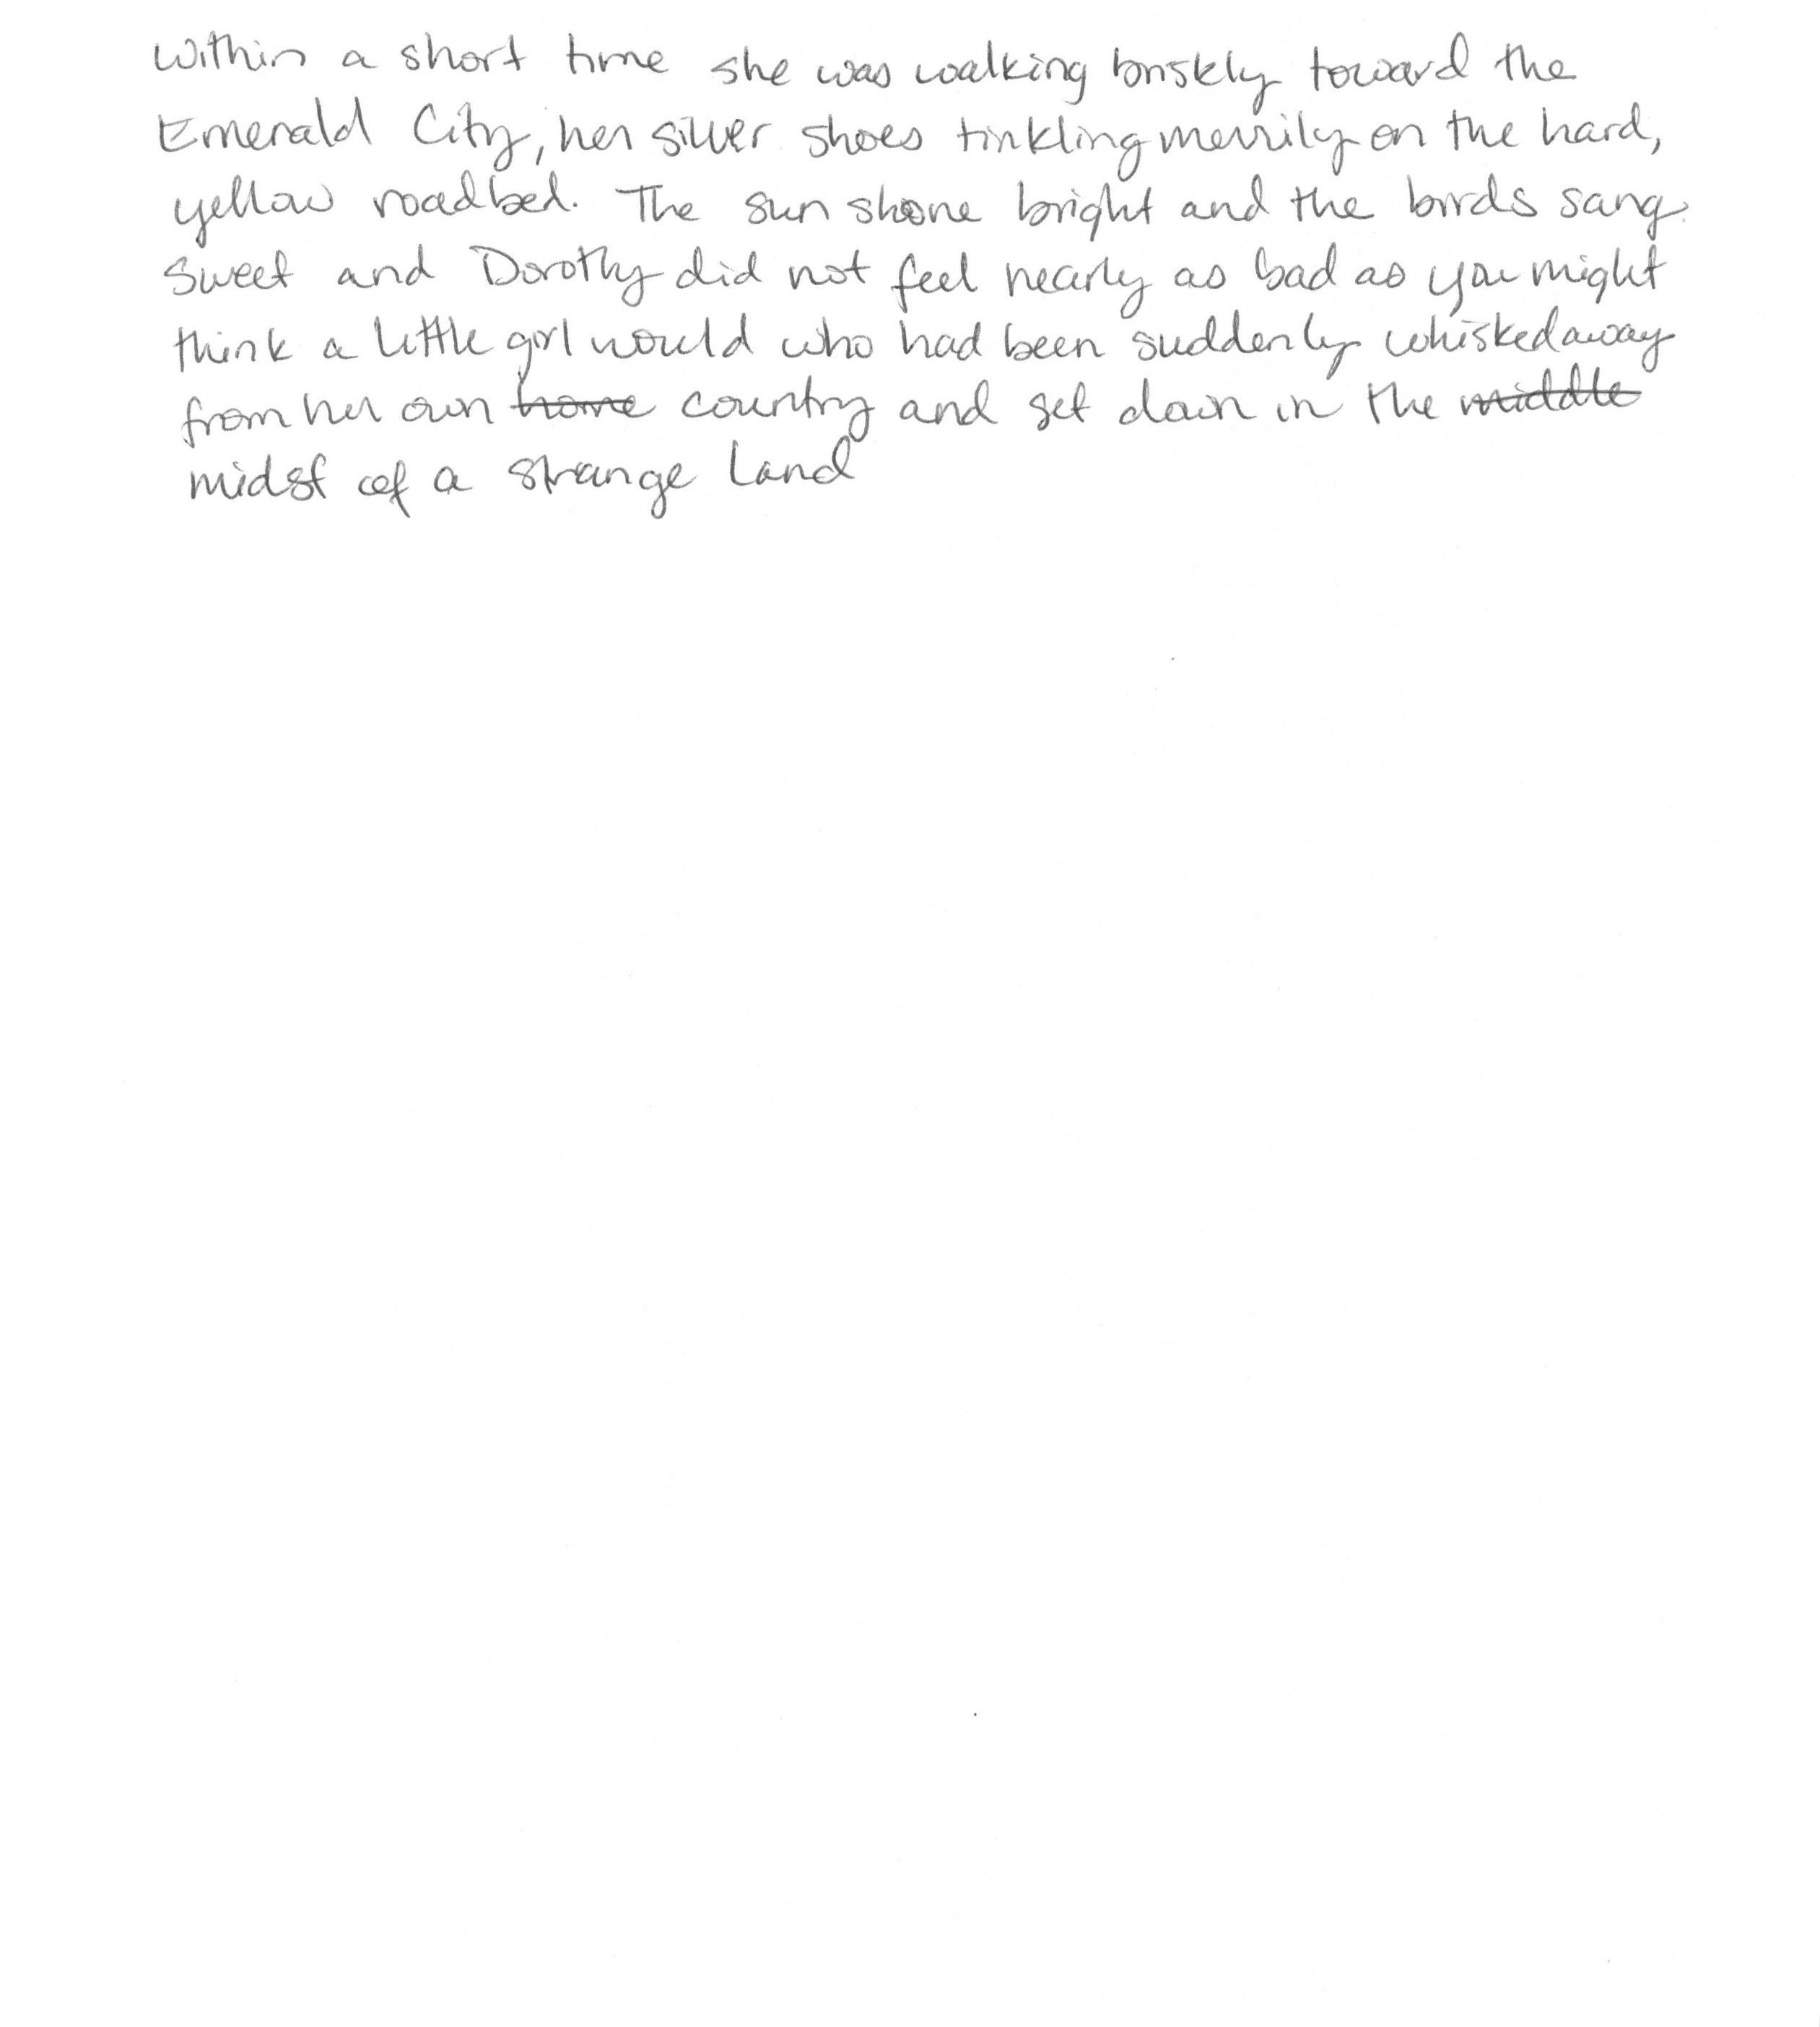 Within a short time she was walking briskly toward the
Emerald City, her silver shoes tinkling merrily on the hard,
yellow roadbed. The sun shone bright and the birds sang
sweet and Dorothy did not feel nearly as bad as you might
think a little girl would who had been suddenly whisked away
from her own ~~home~~ country and set down in the ~~middle~~
midst of a strange land